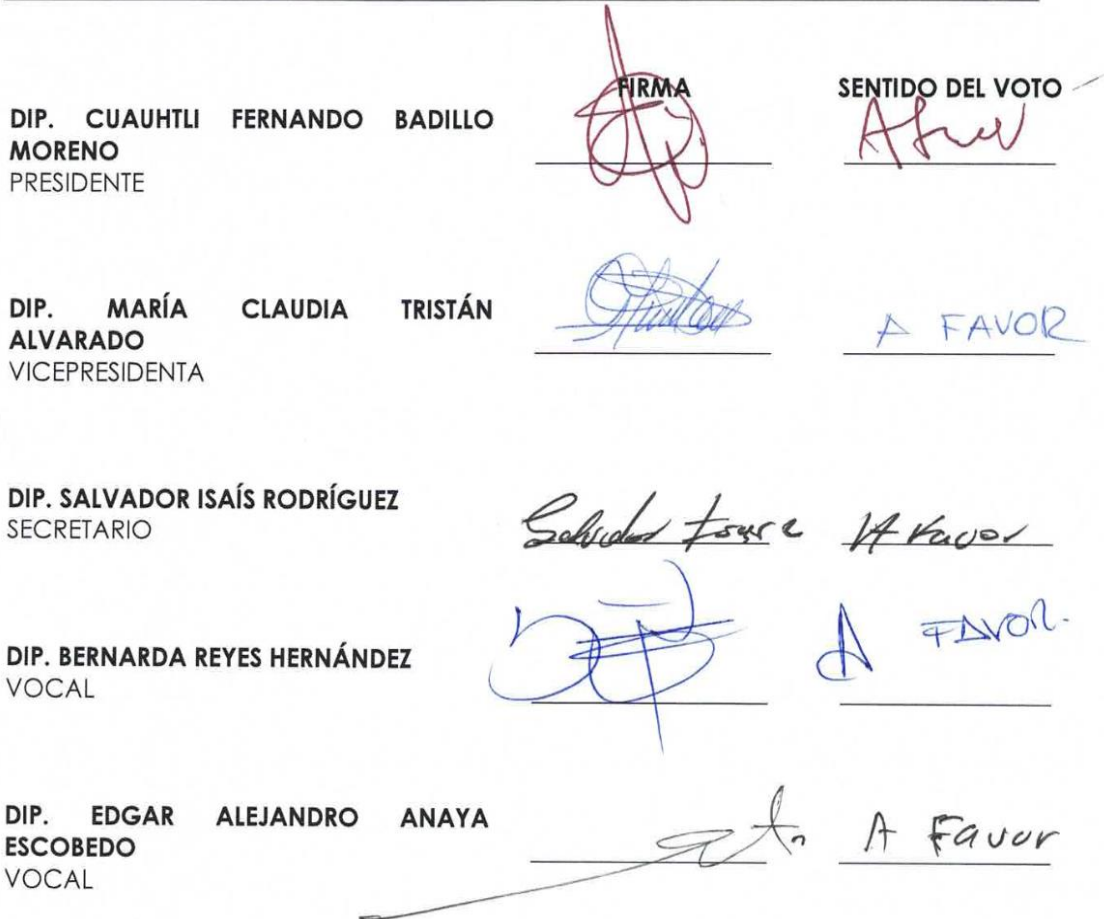 FIRMA SENTIDO DEL VOTO
DIP. CUAUHTLI FERNANDO BADILLO
MORENO
PRESIDENTE
DIP. MARÍA CLAUDIA TRISTÁN
ALVARADO A FAVOR
VICEPRESIDENTA
DIP. SALVADOR ISAÍS RODRÍGUEZ
SECRETARIO Salvador A Favor
DIP. BERNARDA REYES HERNÁNDEZ A FAVOR.
VOCAL
DIP. EDGAR ALEJANDRO ANAYA
ESCOBEDO A Favor
VOCAL